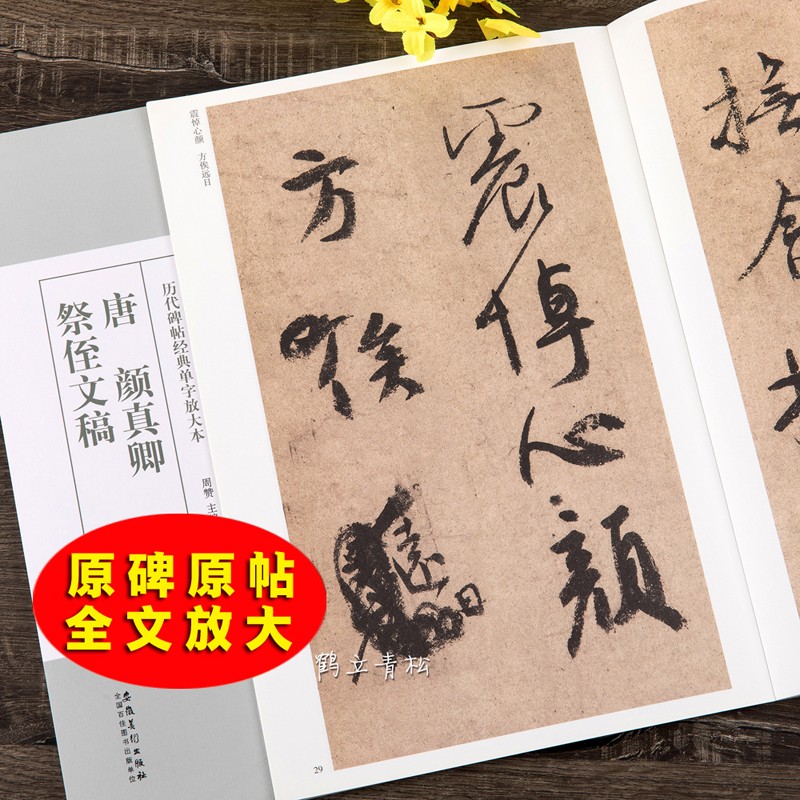 历代碑帖经典单字放大本
唐 颜真卿
祭侄文稿
周赞 主
安徽美术出版社
全国百佳图书出版单位
原碑原帖
全文放大
震悼心颜 方俟远日
震悼心顔
方俟
遠日
29
鹤立青松